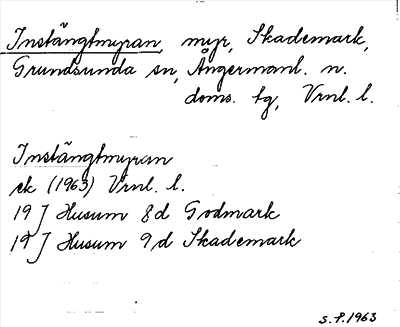 Instängtmyran, myr, Skademark,
Grundsunda sn, Ångermanl. n.
doms. tg, Vrnl. l.
Instängtmyran
ek (1963) Vrnl. l.
19 J Husum 8d Godmark
19 J Husum 9d Skademark
S.P. 1963